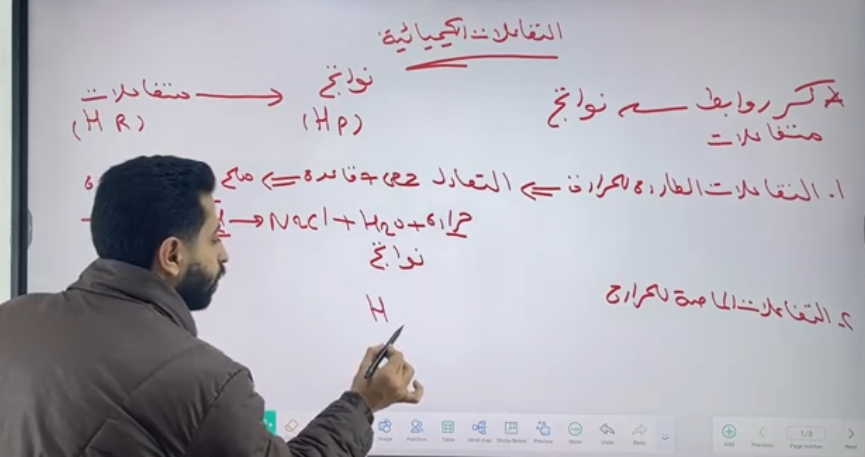 التفاعلات الكيميائية
* كسر روابط ← نواتج
متفاعلات
نواتج
متفاعلات →
(HR)
(HP)
١. التفاعلات الطاردة للحرارة ⇐ التعادل + قاعدة ⇐
→ NaCl + H2O + حرارة
نواتج
H
٢. التفاعلات الماصة للحرارة
Shape Partition Table Mind map Sticky Notes Preview More Undo Redo
Add Previous 1/3 Page number Next